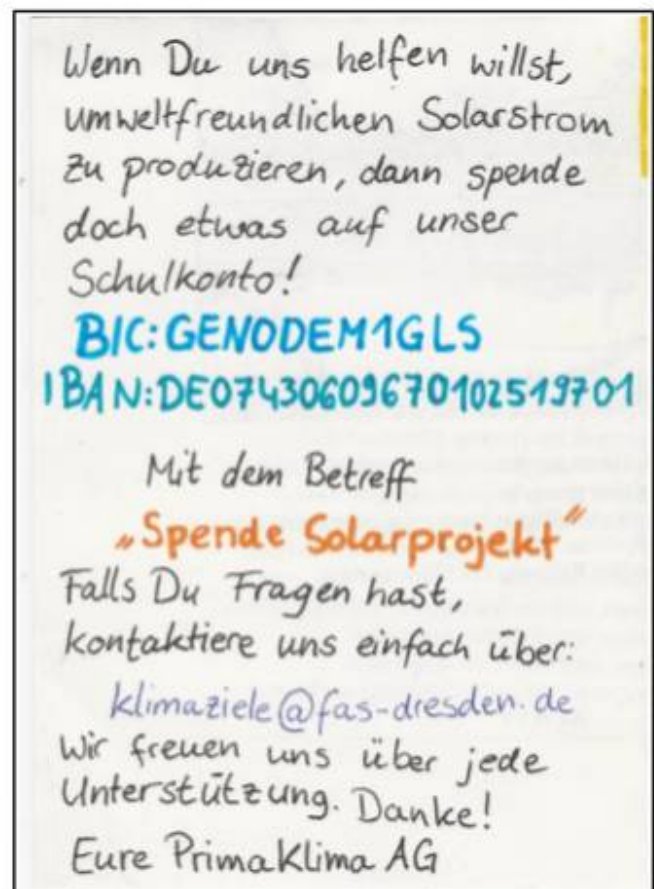 Wenn Du uns helfen willst,
umweltfreundlichen Solarstrom
zu produzieren, dann spende
doch etwas auf unser
Schulkonto!
BIC: GENODEM1GLS
IBAN: DE07430609670102519701
Mit dem Betreff
„Spende Solarprojekt"
Falls Du Fragen hast,
kontaktiere uns einfach über:
klimaziele@fas-dresden.de
Wir freuen uns über jede
Unterstützung. Danke!
Eure PrimaKlima AG